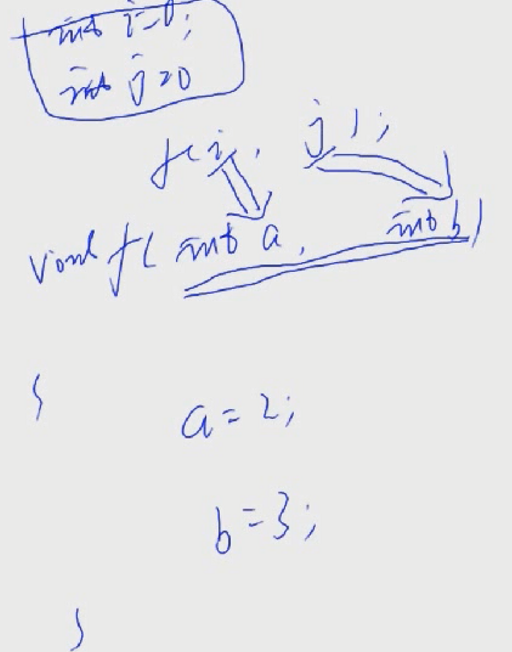 int i=0;
int j=0
f(i, j);
void f( int a, int b)
{
a=2;
b=3;
}